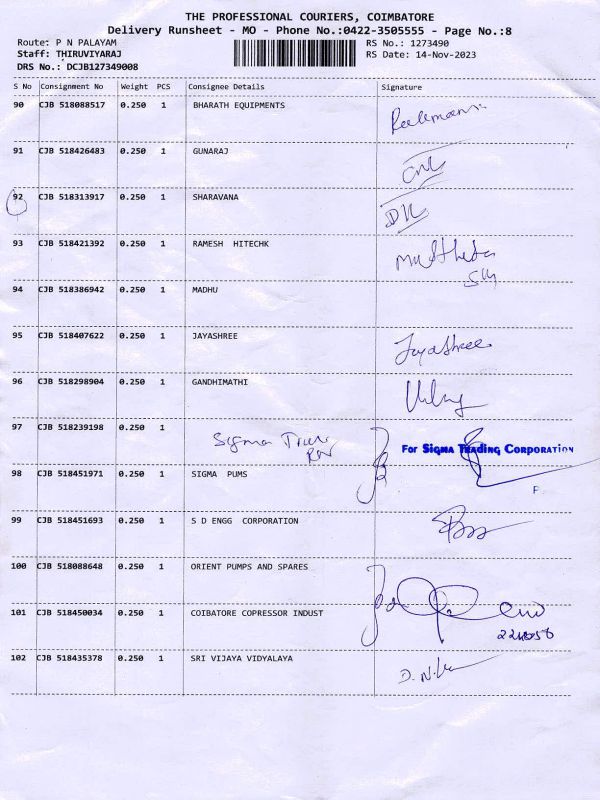 THE PROFESSIONAL COURIERS, COIMBATORE
Delivery Runsheet - MO - Phone No.:0422-3505555 - Page No.:8
Route: P N PALAYAM RS No.: 1273490
Staff: THIRUVIYARAJ RS Date: 14-Nov-2023
DRS No.: DCJB127349008
S No Consignment No Weight PCS Consignee Details Signature
90 CJB 518088517 0.250 1 BHARATH EQUIPMENTS
91 CJB 518426483 0.250 1 GUNARAJ
92 CJB 518313917 0.250 1 SHARAVANA
93 CJB 518421392 0.250 1 RAMESH HITECHK
94 CJB 518386942 0.250 1 MADHU
95 CJB 518407622 0.250 1 JAYASHREE Jayashree
96 CJB 518298904 0.250 1 GANDHIMATHI
97 CJB 518239198 0.250 1 Sigma For SIGMA TRADING CORPORATION
98 CJB 518451971 0.250 1 SIGMA PUMS
P
99 CJB 518451693 0.250 1 S D ENGG CORPORATION
100 CJB 518088648 0.250 1 ORIENT PUMPS AND SPARES
101 CJB 518450034 0.250 1 COIBATORE COPRESSOR INDUST
102 CJB 518435378 0.250 1 SRI VIJAYA VIDYALAYA